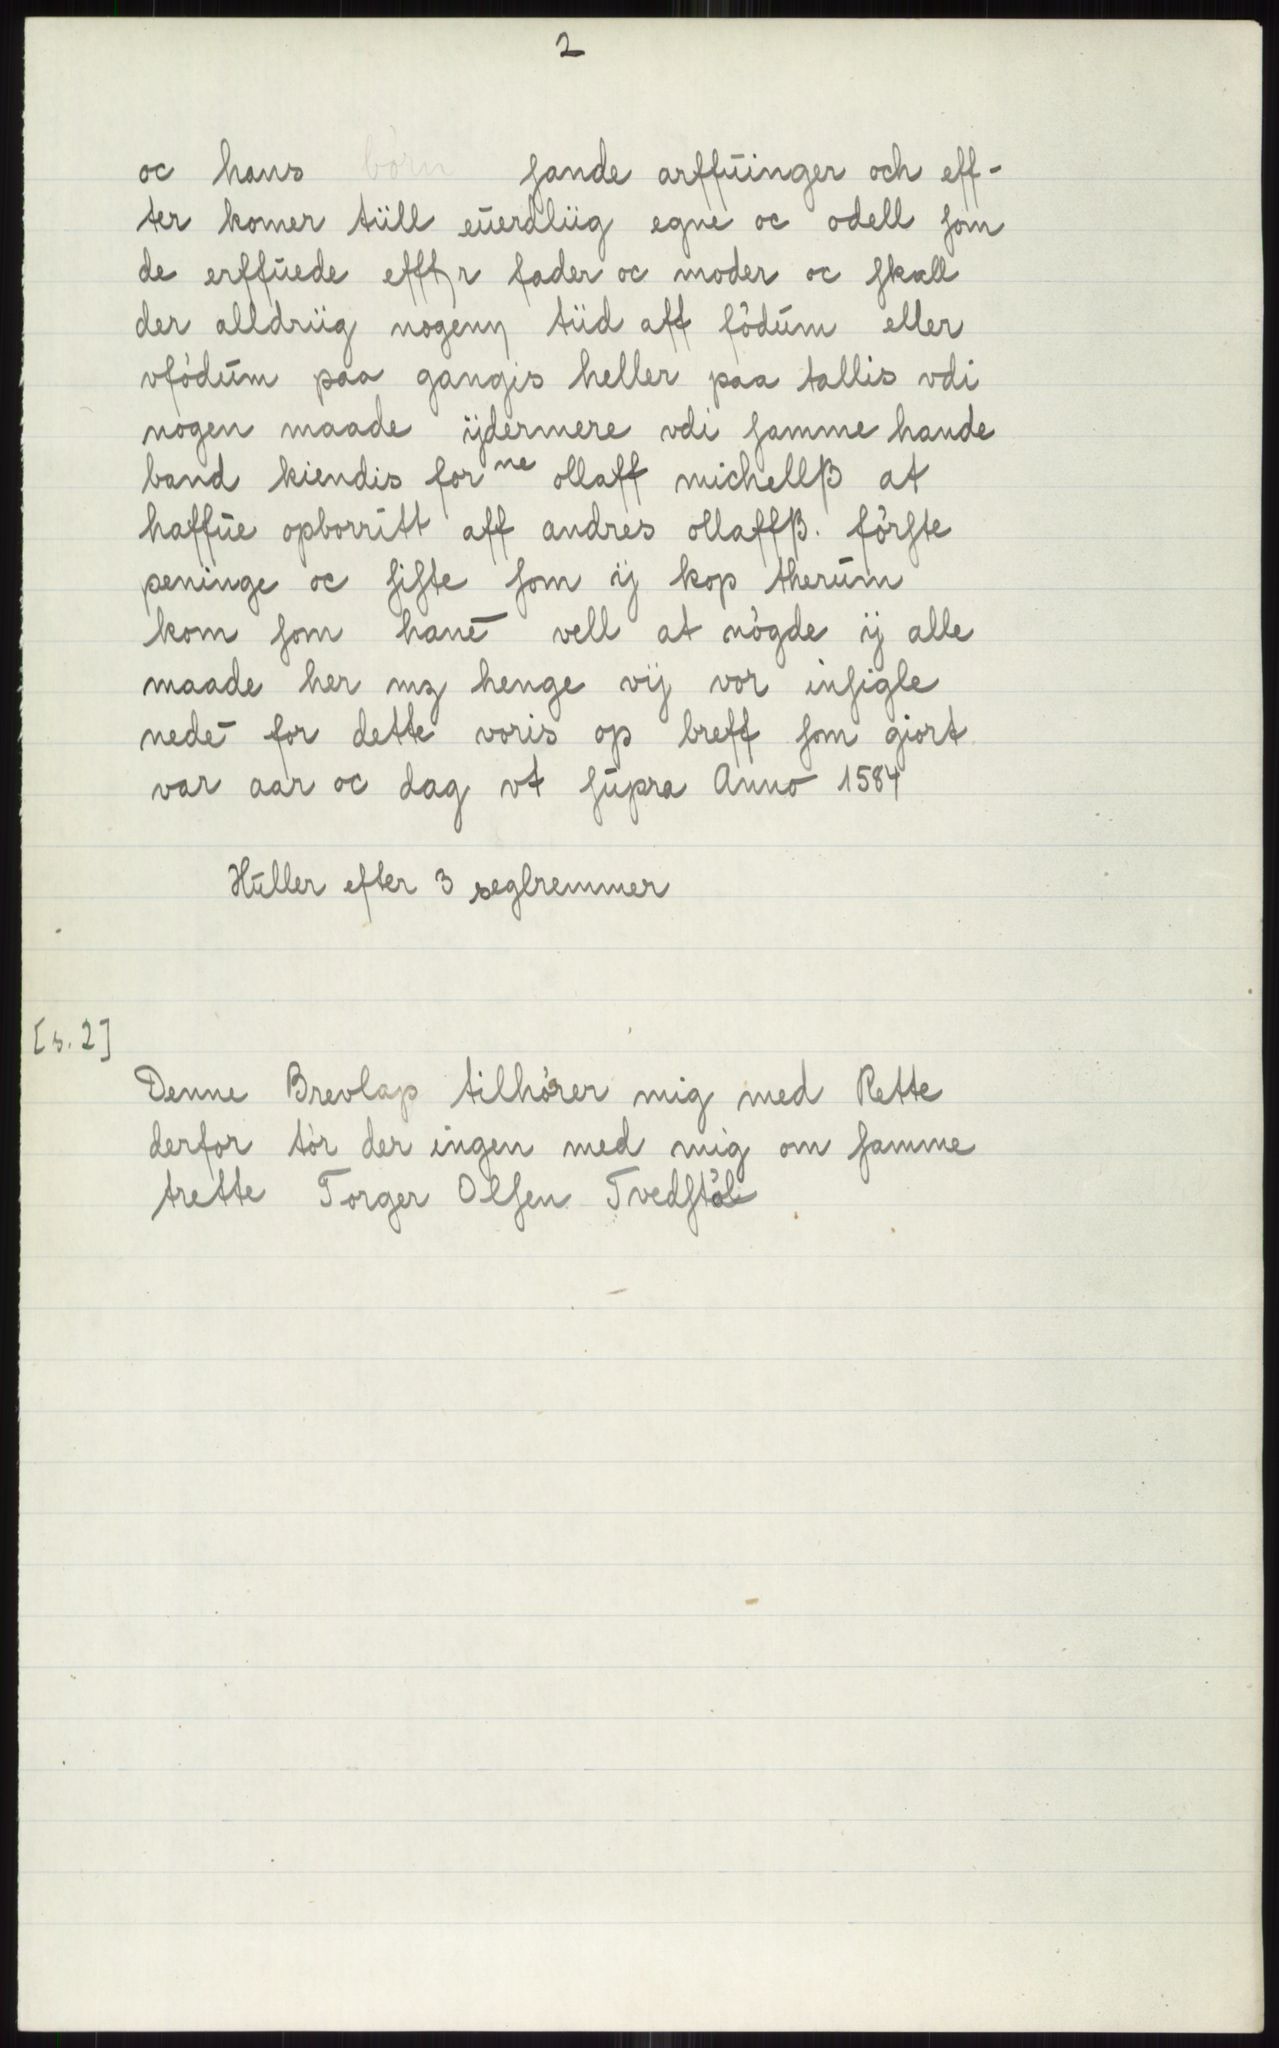 2
oc hans börn sande arffuinger och eff-
ter komer tüll euerdlüg egne oc odell som
de erffuede efftr fader oc moder oc skall
der alldrüg nogenn tüd aff födum eller
vfödum paa gangis heller paa tallis vdi
nogen maade ijdermere vdi samme hande
band kiendis for ne ollaff michellß at
haffue opborritt aff andres ollaffß. förste
peninge oc siste som ij kop therum
kom som hanē vell at nögde ij alle
maade her mz henge vij vor insigle
nedē for dette voris op breff som giort
var aar oc dag vt supra Anno 1584
Huller efter 3 seglremmer
[s. 2]
Denne Brevlap tilhörer mig med Rette
derfor tör der ingen med mig om samme
trette Torger Olsen Tvedstöl